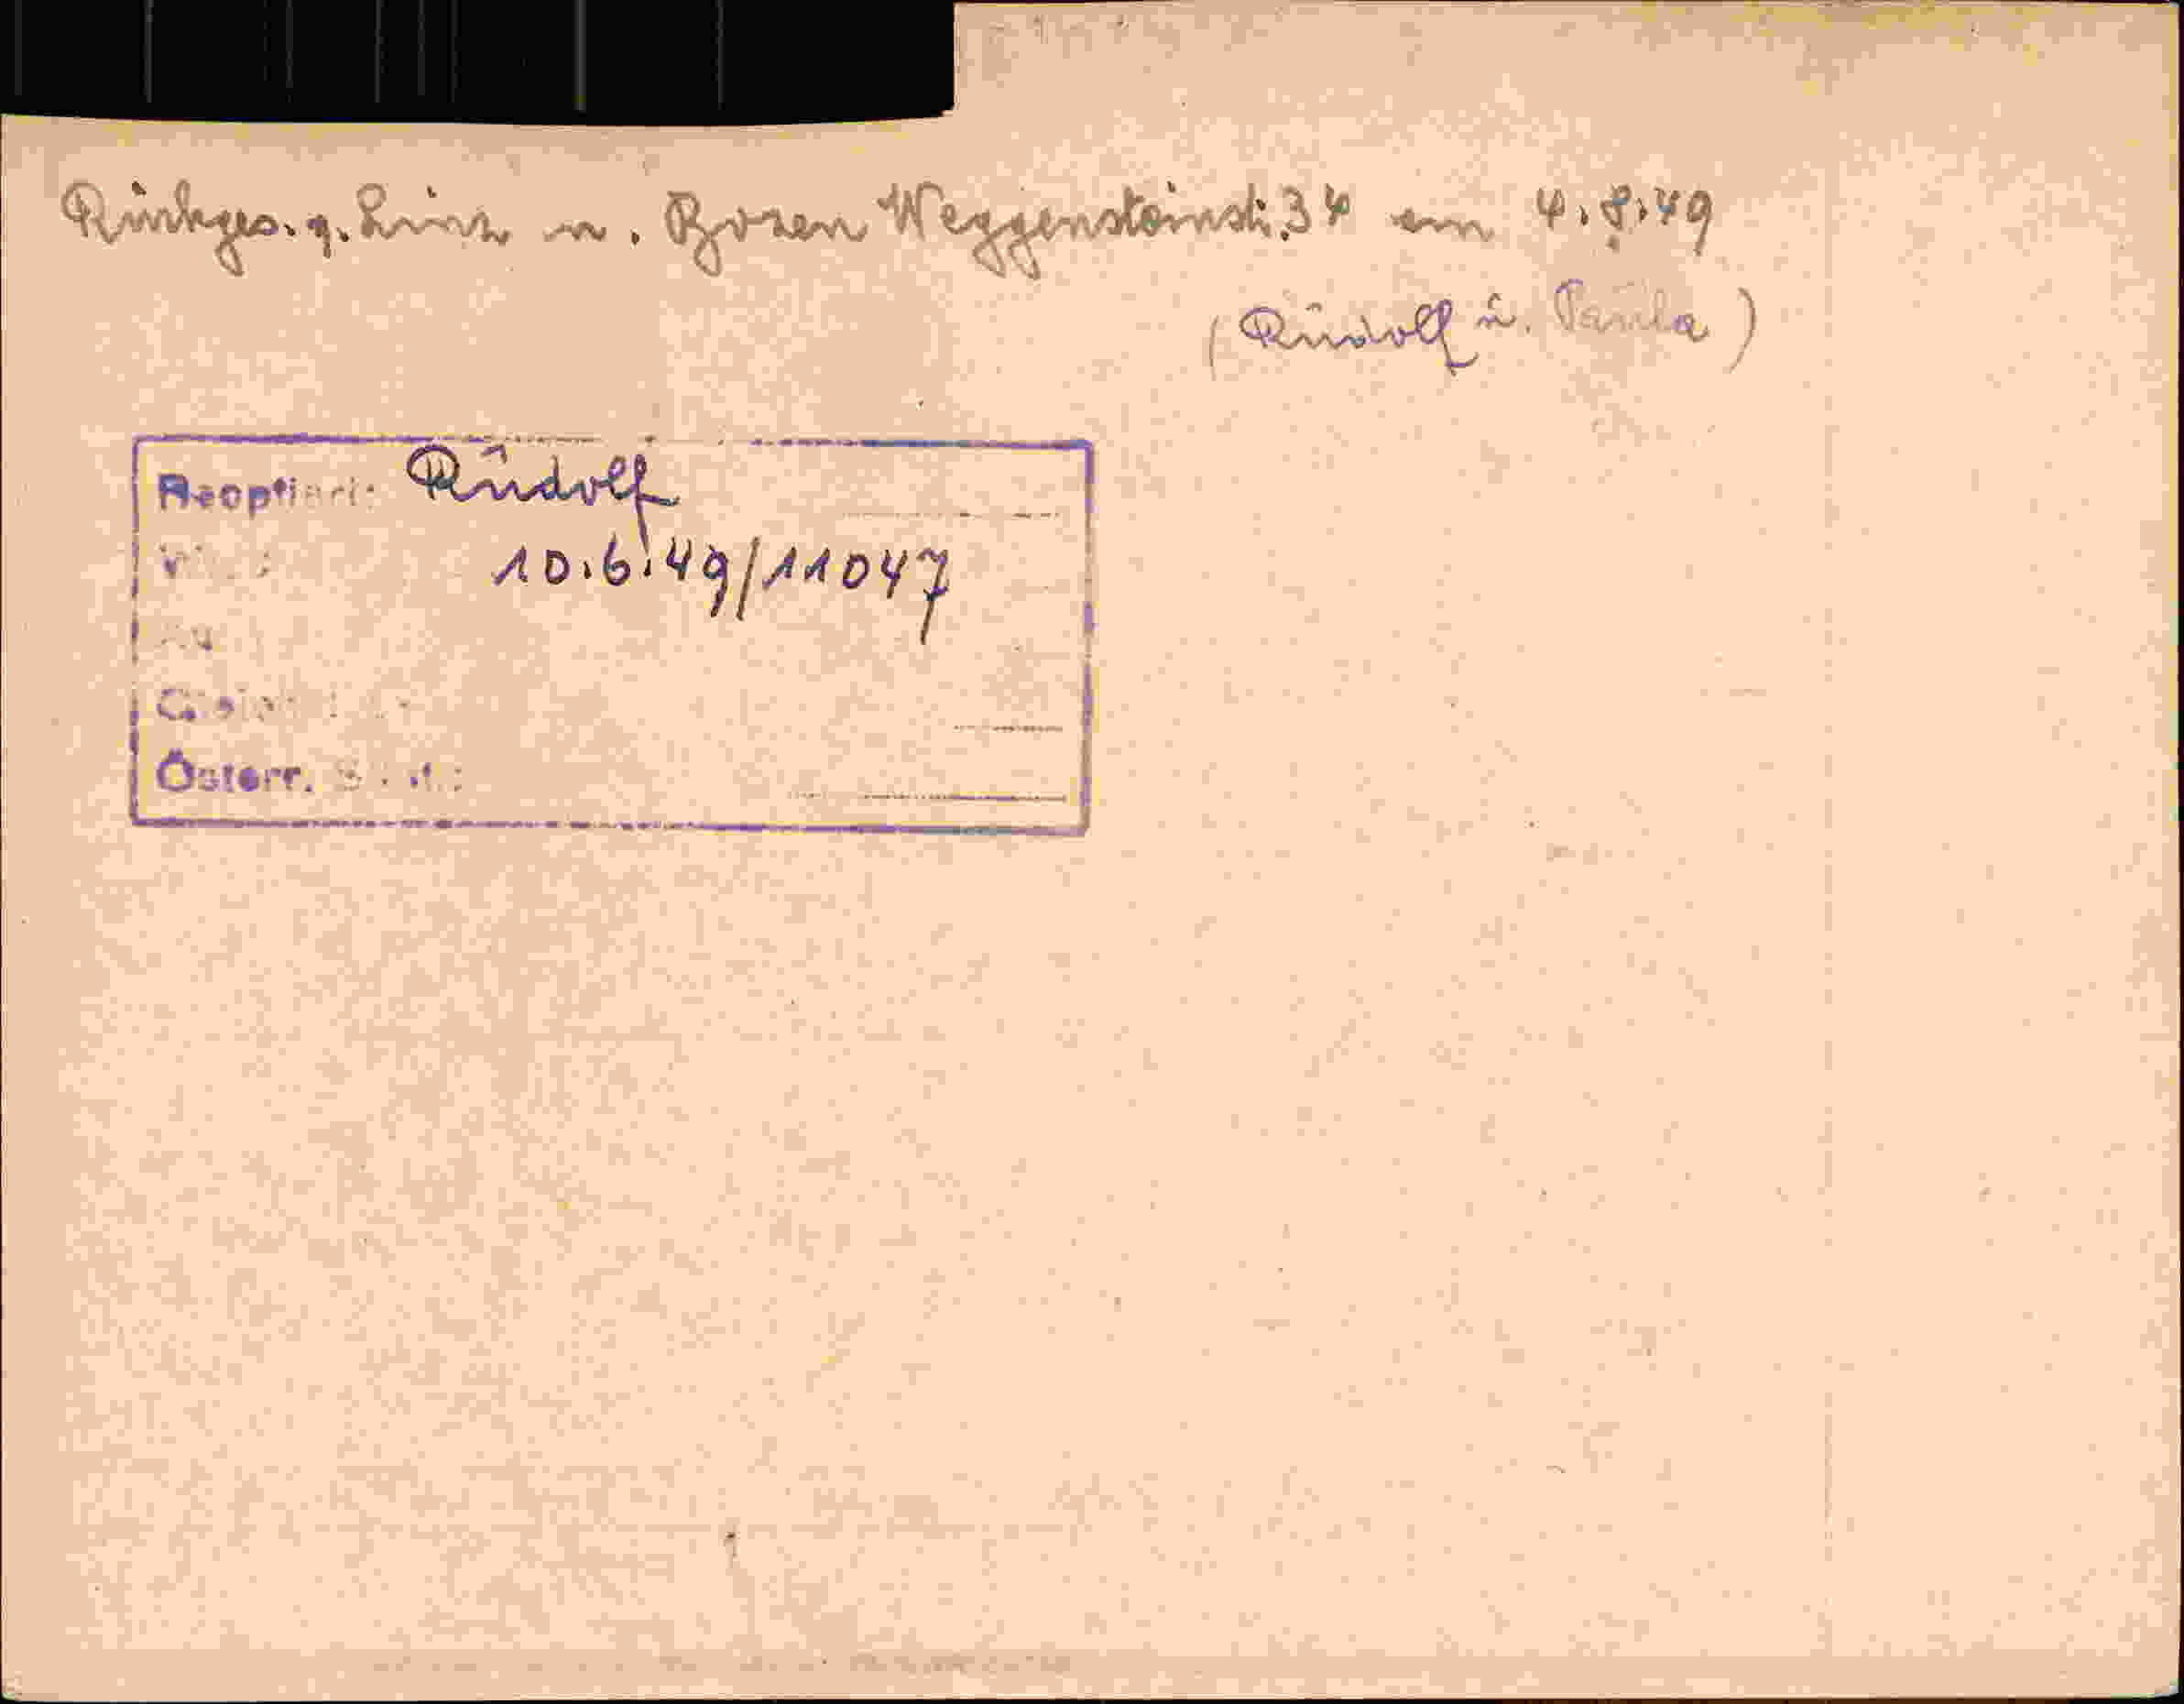 Rückges. v. Linz n. Bozen Weggensteinstr. 34 am 4.8.49
(Rudolf u. Paula)
Reoptiert: Rudolf
10.6.49/11047
Österr.